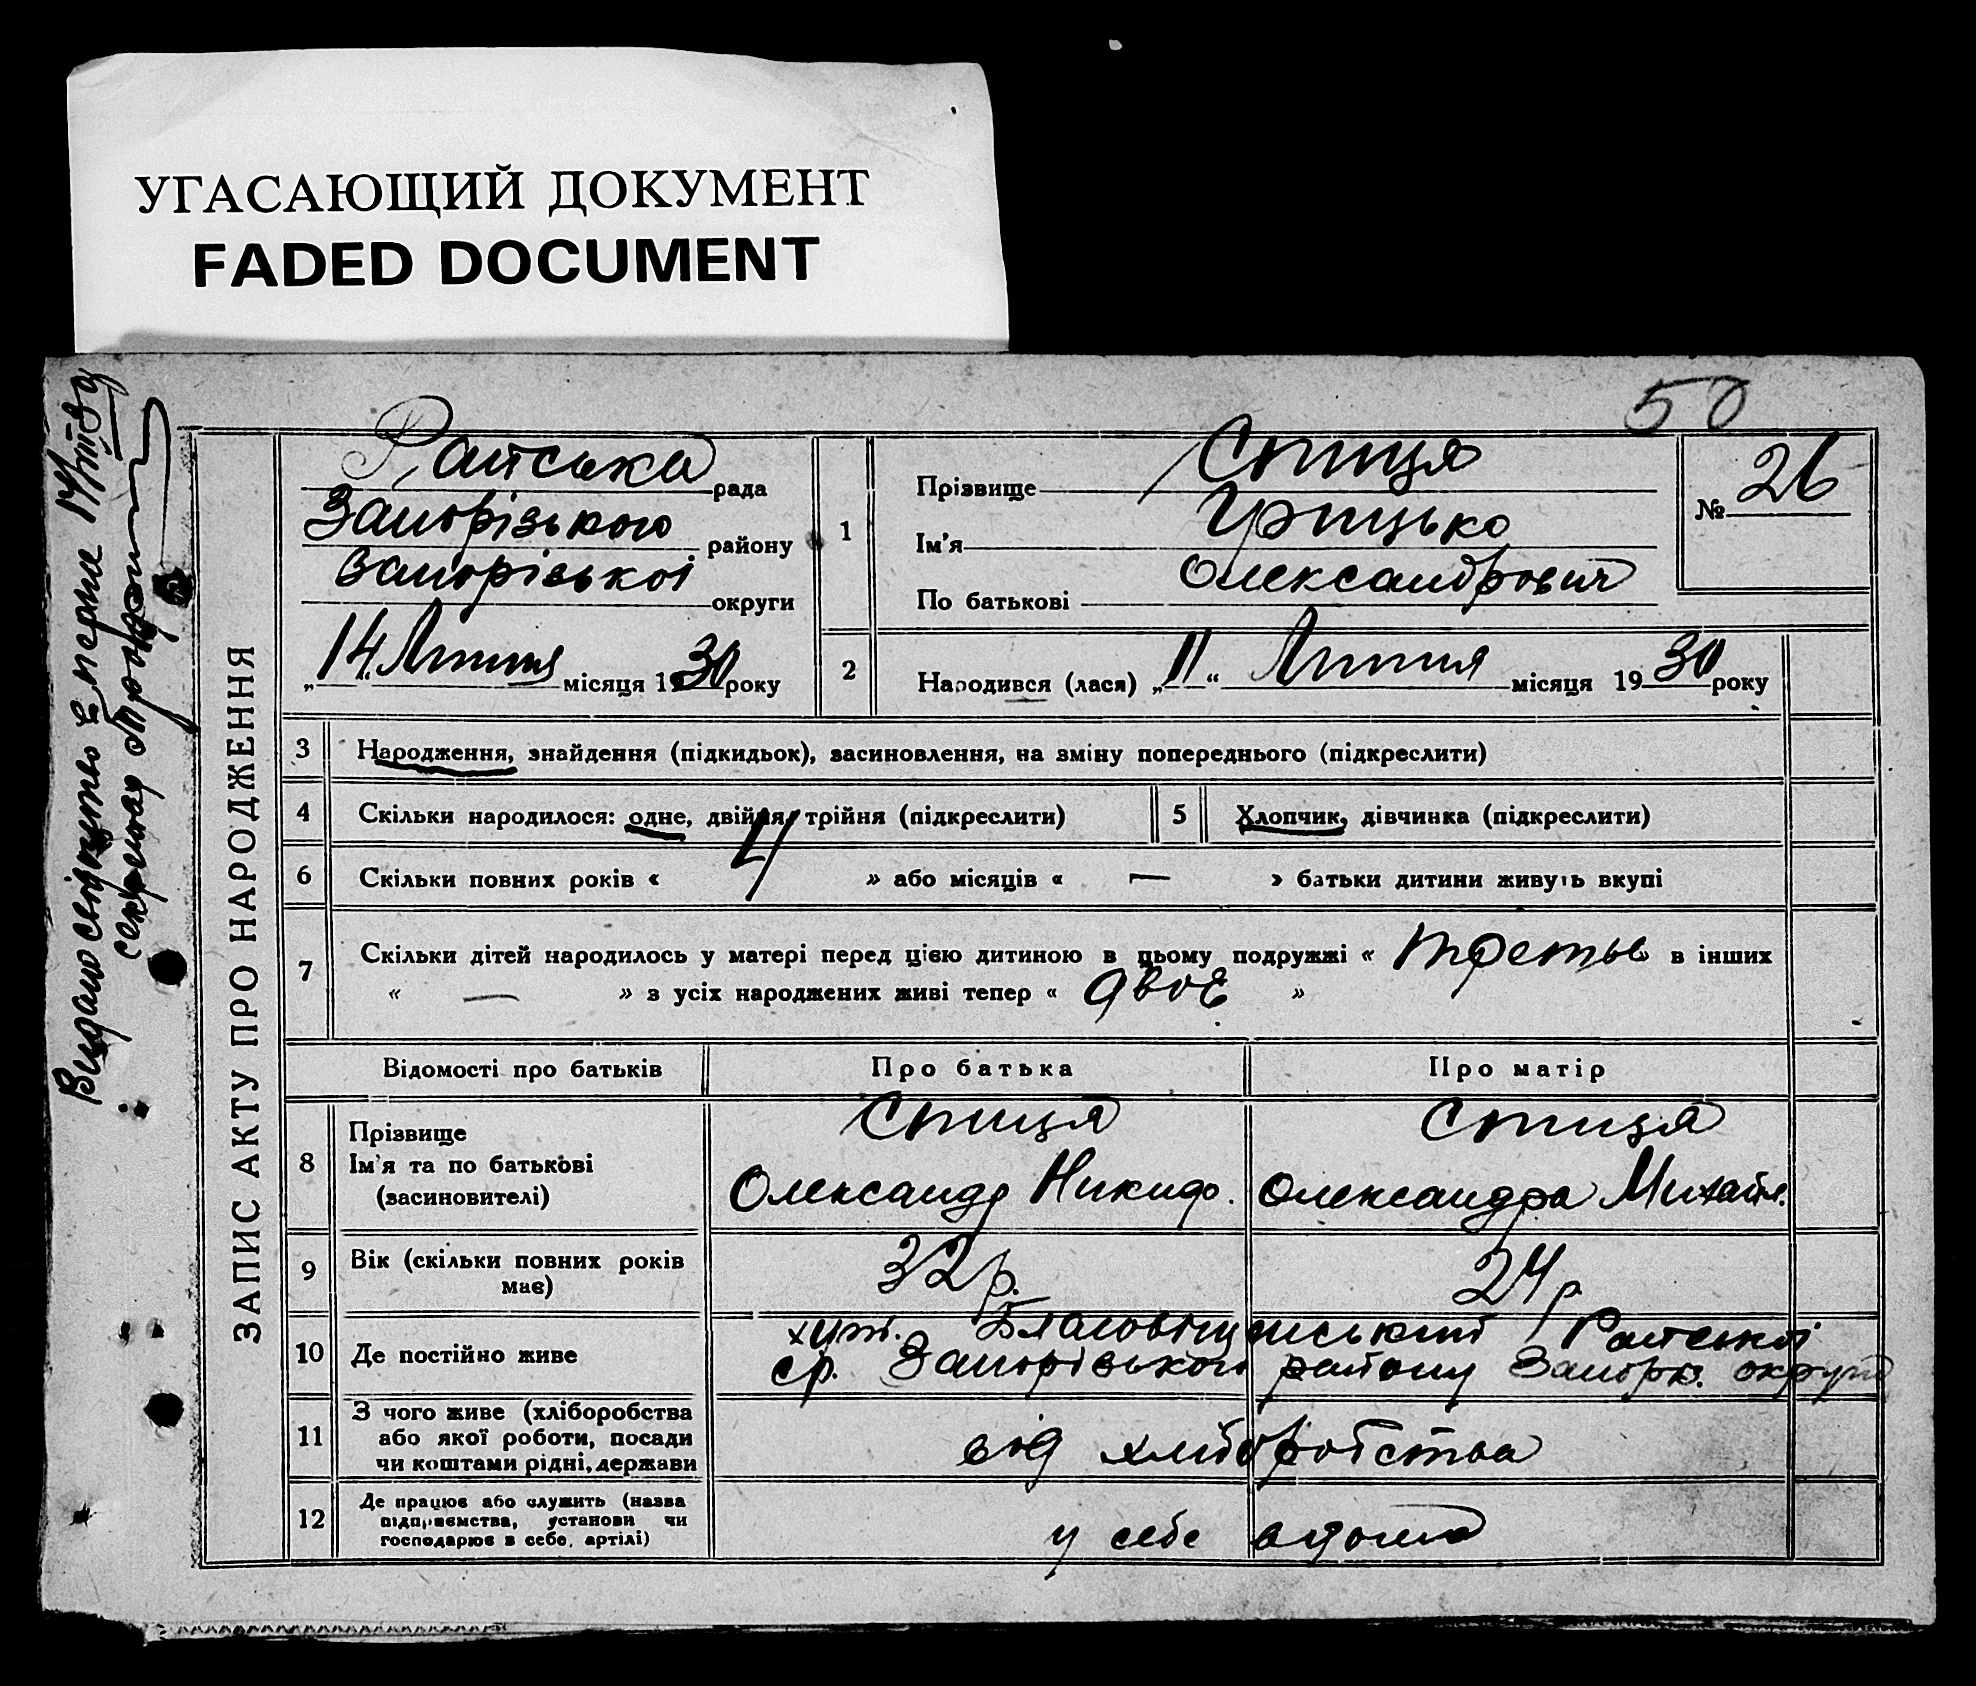 УГАСАЮЩИЙ ДОКУМЕНТ
FADED DOCUMENT
50
Видано свідоцтво
секретар
ЗАПИС АКТУ ПРО НАРОДЖЕННЯ
Райська рада
Запорізького району
Запорізької округи
„14“ Липня місяця 1930 року
1
Прізвище Спиця
Ім'я Грицько
По батькові Олександрович
№ 26
2 Народився (лася) „11“ Липня місяця 1930 року
3 Народження, знайдення (підкидьок), засиновлення, на зміну попереднього (підкреслити)
4 Скільки народилося: одне, двійня, трійня (підкреслити) 5 Хлопчик, дівчинка (підкреслити)
6 Скільки повних років « 4 » або місяців « — » батьки дитини живуть вкупі
7 Скільки дітей народилось у матері перед цією дитиною в цьому подружжі « третье в інших
« — » з усіх народжених живі тепер « двоє »
Відомості про батьків Про батька Про матір
8 Прізвище Спиця Спиця
Ім'я та по батькові Олександр Никиф. Олександра Михайл.
(засиновителі)
9 Вік (скільки повних років має) 32 р. 24 р.
10 Де постійно живе хут. Благовіщенський Райської
ср. Запорізького району Запорж. округи
11 З чого живе (хліборобства
або якої роботи, посади від хліборобства
чи коштами рідні, держави
12 Де працює або служить (назва
підприємства, установи чи у себе вдома
господарює в себе, артілі)